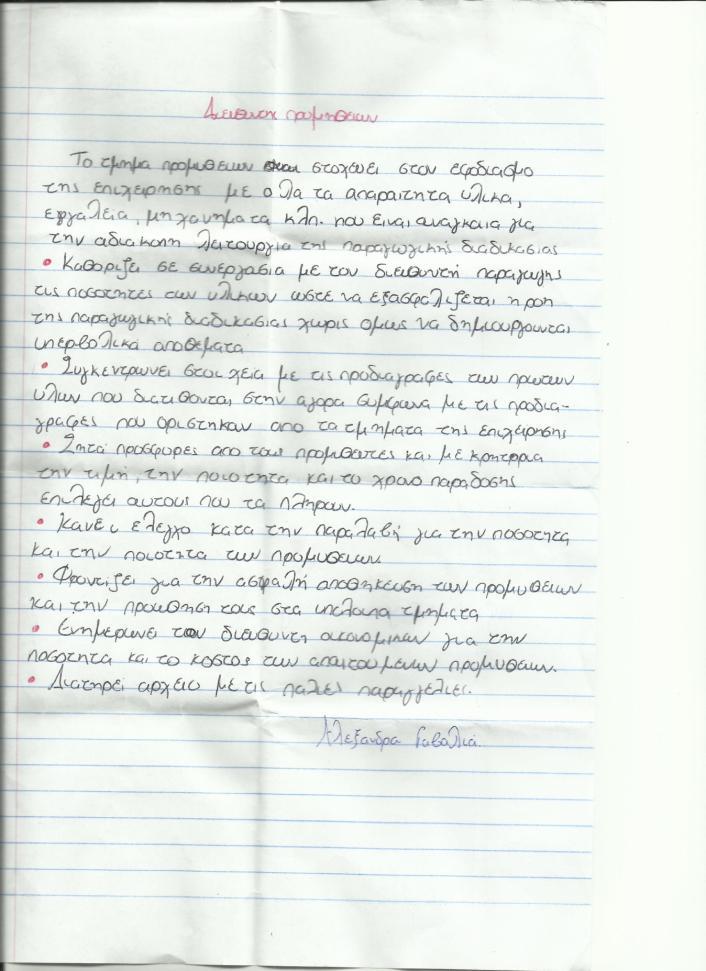 Διευθυνση προμηθειων
Το τμημα προμυθειων στοχευει στον εφοδιασμο
της επιχειρησης με ολα τα απαραιτητα υλικα,
εργαλεια, μηχανηματα κλπ. που ειναι αναγκαια για
την αδιακοπη λειτουργια της παραγωγικης διαδικασιας
• Καθοριζει σε συνεργασια με τον διευθυντή παραγωγης
τις ποσοτητες των υλικων ωστε να εξασφαλιζεται η ροη
της παραγωγικής διαδικασιας χωρις ομως να δημιουργουνται
υπερβολικα αποθεματα
• Συγκεντρωνει στοιχεια με τις προδιαγραφες των πρωτων
υλων που διατιθονται στην αγορα συμφωνα με τις προδια-
γραφες που οριστηκαν απο τα τμηματα της επιχειρησης
• Ζητά προσφορες απο τους προμυθευτες και με κρητηρια
την τιμή, την ποιοτητα και το χρονο παραδοσης
επιλεγει αυτους που τα πληρουν.
• Κανει ελεγχο κατα την παραλαβή για την ποσοτητα
και την ποιοτητα των προμυθειων.
• Φροντιζει για την ασφαλή αποθηκευση των προμυθειων
και την προωθηση τους στα υπολοιπα τμηματα
• Ενημερωνει τον διευθυντη οικονομικων για την
ποσοτητα και το κοστος των απαιτουμενων προμυθειων.
• Διατηρει αρχειο με τις παλιες παραγγελιες.
Αλεξανδρα Γαβαλιά.